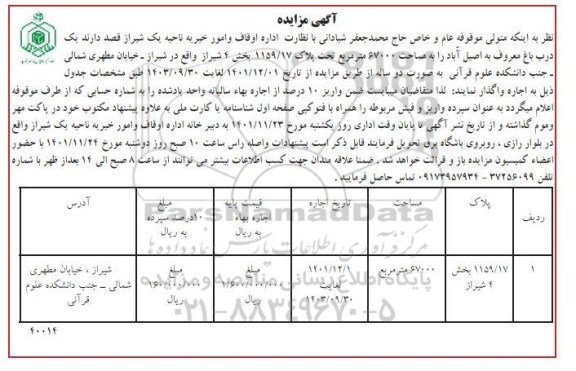 آگهی مزایده
نظر به اینکه متولی موقوفه عام و خاص حاج محمدجعفر شباداتی با نظارت اداره اوقاف وامور خیریه ناحیه یک شیراز قصد دارند یک
درب باغ معروف به اصیل آباد را به مساحت ۶۷۰۰۰ مترمربع تحت پلاک ۱۱۵۹/۱۷ بخش ۴ شیراز واقع در شیراز ـ خیابان مطهری شمالی
ـ جنب دانشکده علوم قرآنی به صورت دو ساله از طریق مزایده از تاریخ ۱۴۰۱/۱۲/۰۱ لغایت ۱۴۰۳/۰۹/۳۰ طبق مشخصات جدول
ذیل به اجاره واگذار نمایند: لذا متقاضیان میبایست ضمن واریز ۱۰ درصد از اجاره بهاء سالیانه واحد یادشده را به شماره حسابی که از طرف موقوفه
اعلام میگردد به عنوان سپرده واریز و فیش مربوطه را همراه با فتوکپی صفحه اول شناسنامه یا کارت ملی به علاوه پیشنهاد مکتوب خود در پاکت مهر
وموم گذاشته و از تاریخ نشر آگهی تا پایان وقت اداری روز یکشنبه مورخ ۱۴۰۱/۱۱/۲۳ به دبیر خانه اداره اوقاف وامور خیریه ناحیه یک شیراز واقع
در بلوار رازی ، روبروی باشگاه برق تحویل فرمایند قابل ذکر است پیشنهادات واصله راس ساعت ۱۰ صبح روز دوشنبه مورخ ۱۴۰۱/۱۱/۲۴ با حضور
اعضاء کمیسیون مزایده باز و قرائت خواهد شد . ضمنا علاقه مندان جهت کسب اطلاعات بیشتر می توانند از ساعت ۸ صبح الی ۱۴ بعداز ظهر با شماره
تلفن ۳۷۲۵۶۰۹۹ - ۰۹۱۷۳۹۵۷۹۳۴ تماس حاصل فرمایید .
ردیف پلاک مساحت تاریخ اجاره قیمت پایه اجاره بهاء به ریال مبلغ ۱۰درصد سپرده به ریال آدرس
۱ ۱۱۵۹/۱۷ بخش ۴ شیراز ۶۷۰۰۰ مترمربع ۱۴۰۱/۱۲/۱ لغایت ۱۴۰۳/۰۹/۳۰ مبلغ ۱/۶۰۰/۰۰۰/۰۰۰ ریال مبلغ ۱۶۰/۰۰۰/۰۰۰ ریال شیراز ، خیابان مطهری شمالی ـ جنب دانشکده علوم قرآنی
ParsNamadData
۰۲۱-۸۸۳۴۹۶۷۰-۵
۴۰۰۱۴